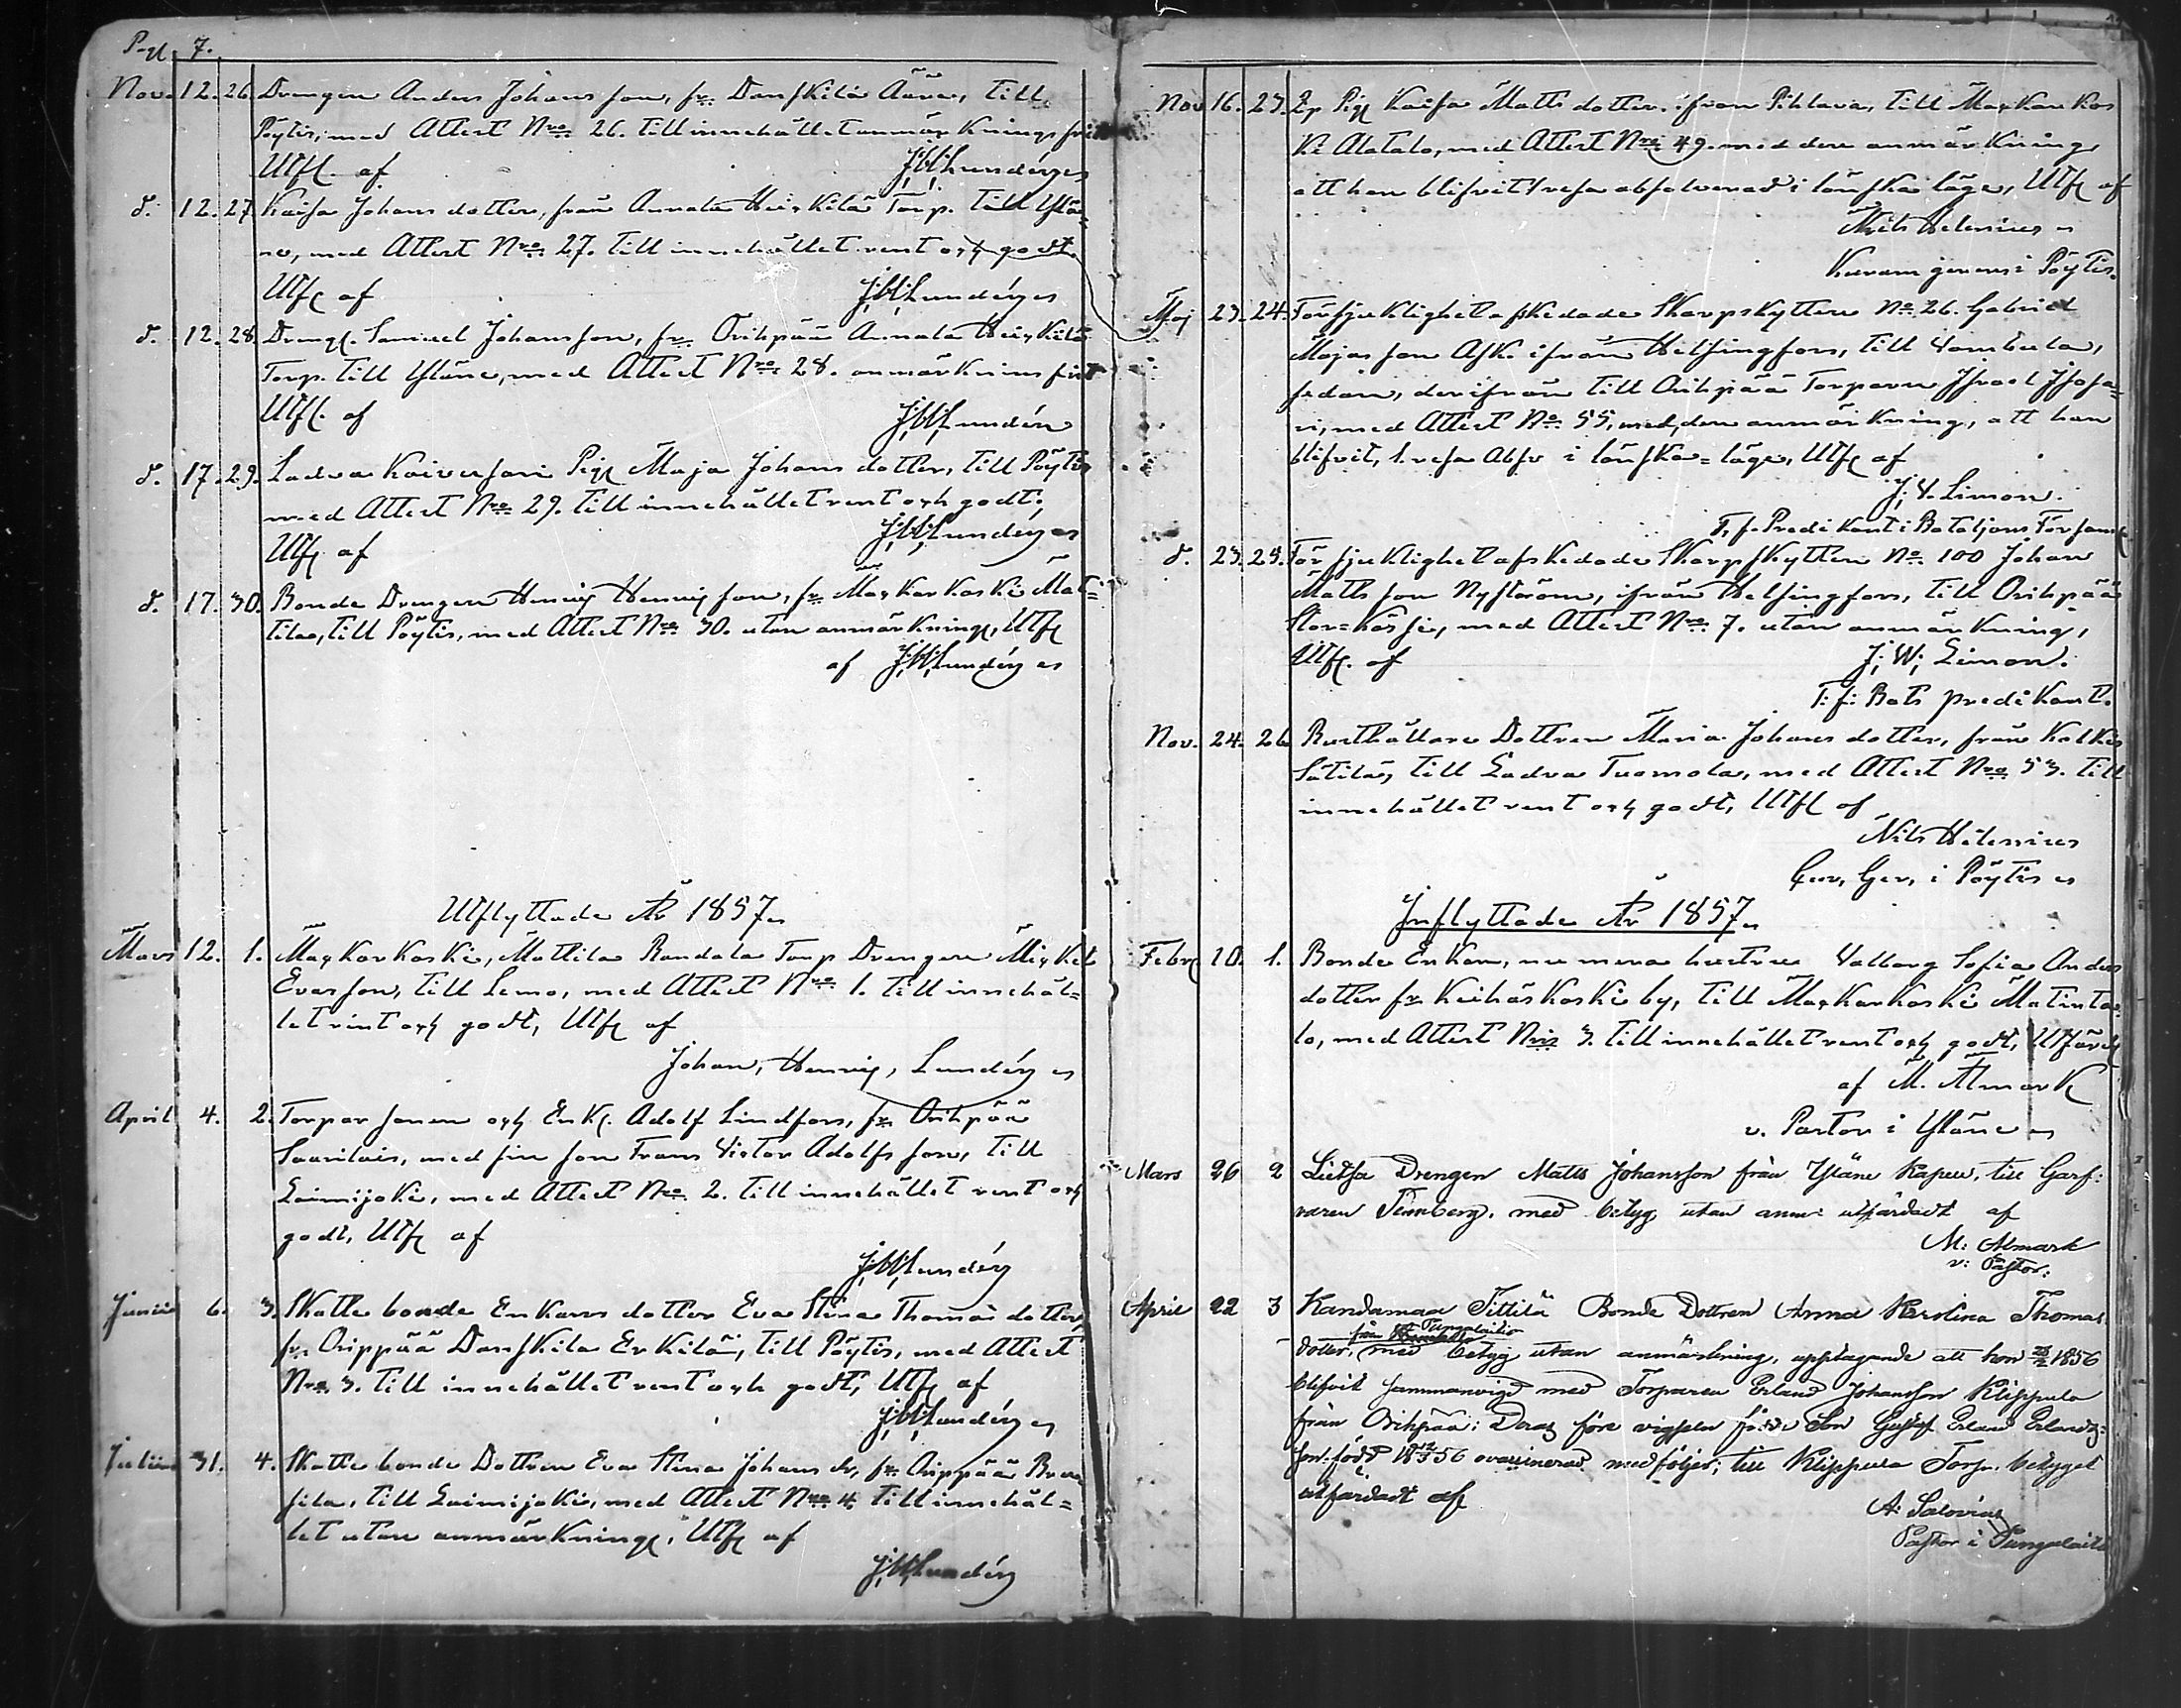 Pag. 7.
Nov. 12. 26. Drengen Anders Johansson, fr. Danskilä Ääre, till
Pöytis, med Attest Nro 26. till innehållet anmärknings fri
Utf. af J: H: Lundén
d. 12. 27. Kaisa Johans dotter, från Annala Heickilä Torp. till Ylä=
ne, med Attest Nro 27. till innehållet rent och godt.
Utf. af J: H: Lundén
d. 12. 28. Dreng. Samuel Johansson, fr. Orihpää Annala Heickilä
Torp. till Yläne, med Attest Nro 28. anmärknins frit
Utf. af J: H: Lundén
d. 17. 29. Ladva Pig. Maja Johans dotter, till Pöytis
med Attest Nro 29. till innehållet rent och godt.
Utf. af J: H: Lundén
d. 17. 30. Bonde Drengen Henric Henricsson, fr. Mackarkoski Mat=
tila, till Pöytis, med Attest Nro 30. utan anmärkning, Utf.
af J: H: Lundén
Utflyttade År 1857.
Mars 12. 1. Mackarkoski, Mattila Randala Torp Drengen Mickel
Evasson, till Lemo, med Attest Nro 1. till innehål=
let rent och godt, Utf. af
Johan, Henric, Lundén
April 4. 2. Torpar sonen och Enkl. Adolf Lindfors, fr. Orihpää
med sin son Frans Victor Adolfsson, till
Loimijoki, med Attest Nro 2. till innehållet rent och
godt, Utf. af
J: H: Lundén
Junii 6. 3. Skatte bonde Enkans dotter Eva Stina Thomas dotter,
fr. Orippää Danskila Erkilä, till Pöytis, med Attest
Nro 3. till innehållet rent och godt, Utf. af
J: H: Lundén
Julii 31. 4. Skatte bonde Dottren Eva Stina Johans dr, fr. Orippää
till Loimijoki, med Attest Nro 4. till innehål=
let utan anmärkning, Utf. af
J: H: Lundén
Nov 16. 23. Pig. Kaisa Matts dotter, ifrån Pihlava, till Mackarkos
ki Alatalo, med Attest Nro 49. med den anmärkning
att hon blifvit 1 resa absolverad i lönska läge, Utf. af
Nils Helenius
Kuram gerens i Pöytis.
Maj 23. 24. För sjuklighet afskedade Skarpskytten No 26. Gabriel
Majasson Ask ifrån Helsingfors, till Vambula,
sedan, derifrån till Orihpää Torparn Israel
med Attest No 55, med, den anmärkning, att han
blifvit, 1. resa Absv i lönska=läge, Utf. af
J. V. Limon.
T, f. Predikant i Bataljons Församl.
d. 23. 25. För sjuklighet afskedade Skarpskytten No 100 Johan
Mattsson Nyström, ifrån Helsingfors, till Orihpää
med Attest Nro 7. utan anmärkning,
Utf. af J; W; Limon.
T: f: Bats predikant.
Nov. 24. 26. Rusthållare Dottren Maria Johans dotter, från
till Ladva Tuomola, med Attest Nro 53. till
innehållet rent och godt, Utf. af
Nils Helenius
Cur, Ger, i Pöytis
Inflyttade År 1857.
Febr. 10. 1. Bonde Enkan, nu mera hustrun Valborg Sofia Anders
dotter fr. Keihäskoski by, till Mackarkoski Matinta=
lo, med Attest Nris 3. till innehållet rent och godt, Utfärd.
af M. Almark
v. Pastor i Yläne
Mars 26 2 Drengen Matts Johansson från Yläne Kapell, till Garf:
varen med betyg utan anm: utfärdadt af
M: Almark
v: Pastor:
April 22 3 Kandamaa Tittilä Bonde Dottren Anna Karolina Thomas
från Pungalaitio
dotter, med betyg utan anmärkning, upptagande att hon 1856
blifvit sammanvigd med Torparen Erland Johansson Klippula
från Orihpää: Deras före vigseln födde Son Gustaf Erland Erlands:
son. född 1856 ovaccinerad medföljer; till Klippula Torp. betyget
utfärdadt af
A: Salovius
Pastor i Pungalaitio